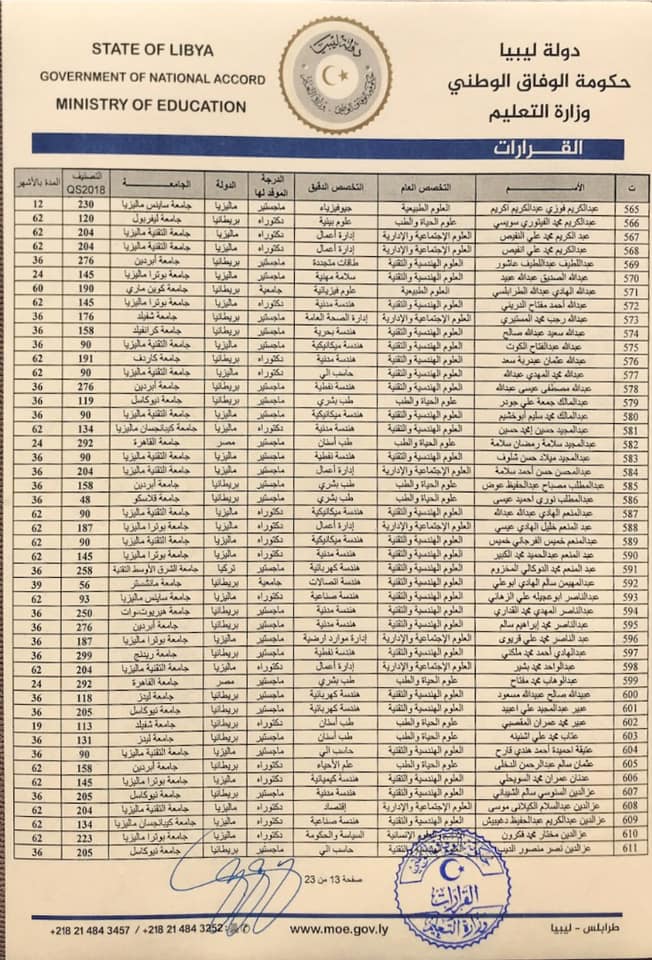 STATE OF LIBYA
GOVERNMENT OF NATIONAL ACCORD
MINISTRY OF EDUCATION
دولة ليبيا
حكومة الوفاق الوطني
وزارة التعليم
القرارات
ت الأســـم التخصص العام التخصص الدقيق الدرجة الموفد لها الدولة الجامعـــة التصنيف QS2018 المدة بالأشهر
565 عبدالكريم فوزي عبدالكريم اكريم العلوم الطبيعية جيوفيزياء ماجستير ماليزيا جامعة ساينس ماليزيا 230 12
566 عبدالكريم محمد الفيتوري سويسي علوم الحياة والطب علوم بيئية دكتوراه بريطانيا جامعة ليفربول 120 62
567 عبد الكريم محمد علي النفيص العلوم الإجتماعية والإدارية إدارة أعمال دكتوراه ماليزيا جامعة التقنية ماليزيا 204 62
568 عبدالكريم محمد علي انفيص العلوم الإجتماعية والإدارية إدارة أعمال دكتوراه ماليزيا جامعة التقنية ماليزيا 204 62
569 عبداللطيف عبداللطيف عاشور العلوم الهندسية والتقنية طاقات متجددة ماجستير بريطانيا جامعة أبردين 276 36
570 عبدالله الصديق عبدالله عبيد العلوم الهندسية والتقنية سلامة مهنية ماجستير ماليزيا جامعة بوترا ماليزيا 145 24
571 عبدالله الهادي عبدالله الطرابلسي العلوم الطبيعية علوم فيزيائية جامعية بريطانيا جامعة كوين ماري 190 60
572 عبدالله أحمد مفتاح الدريني العلوم الهندسية والتقنية هندسة مدنية دكتوراه ماليزيا جامعة بوترا ماليزيا 145 62
573 عبدالله رجب محمد المستيري العلوم الإجتماعية والإدارية إدارة الصحة العامة ماجستير بريطانيا جامعة شفيلد 176 36
574 عبدالله سعيد عبدالله صالح العلوم الهندسية والتقنية هندسة بحرية ماجستير بريطانيا جامعة كرانفيلد 158 36
575 عبدالله عبدالفتاح الكوت العلوم الهندسية والتقنية هندسة ميكانيكية ماجستير ماليزيا جامعة التقنية ماليزيا 90 36
576 عبدالله عثمان عبدربة سعد العلوم الهندسية والتقنية هندسة مدنية دكتوراه بريطانيا جامعة كاردف 191 62
577 عبدالله محمد المهدي عبدالله العلوم الهندسية والتقنية حاسب الي دكتوراه ماليزيا جامعة التقنية ماليزيا 90 62
578 عبدالله مصطفى عيسى عبدالله العلوم الهندسية والتقنية هندسة نفطية ماجستير بريطانيا جامعة أبردين 276 36
579 عبدالمالك جمعة علي جودر علوم الحياة والطب طب بشري ماجستير بريطانيا جامعة نيوكاسل 119 36
580 عبدالمالك محمد سليم أبوخشيم العلوم الهندسية والتقنية هندسة ميكانيكية ماجستير ماليزيا جامعة التقنية ماليزيا 90 36
581 عبدالمجيد حسين إمحمد حسين العلوم الهندسية والتقنية هندسة مدنية دكتوراه ماليزيا جامعة كيبانجسان ماليزيا 134 62
582 عبدالمجيد سلامة رمضان سلامة علوم الحياة والطب طب أسنان ماجستير مصر جامعة القاهرة 292 24
583 عبدالمجيد ميلاد حسن شلوف العلوم الهندسية والتقنية هندسة نفطية ماجستير ماليزيا جامعة التقنية ماليزيا 90 36
584 عبدالمحسن حسن أحمد سلامة العلوم الإجتماعية والإدارية إدارة أعمال ماجستير ماليزيا جامعة التقنية ماليزيا 204 36
585 عبدالمطلب مصباح عبدالحفيظ عوض علوم الحياة والطب طب بشري ماجستير بريطانيا جامعة أبردين 158 36
586 عبدالمطلب نوري احميد عيسى علوم الحياة والطب طب بشري ماجستير بريطانيا جامعة قلاسكو 48 36
587 عبدالمنعم الهادي عبدالله عبدالله العلوم الهندسية والتقنية هندسة ميكانيكية دكتوراه ماليزيا جامعة التقنية ماليزيا 90 62
588 عبد المنعم خليل الهادي عيسي العلوم الإجتماعية والإدارية إدارة أعمال دكتوراه ماليزيا جامعة بوترا ماليزيا 187 62
589 عبدالمنعم خميس الفرجاني خميس العلوم الهندسية والتقنية هندسة ميكانيكية دكتوراه ماليزيا جامعة التقنية ماليزيا 90 62
590 عبد المنعم عبدالحميد محمد الكبير العلوم الهندسية والتقنية هندسة مدنية دكتوراه ماليزيا جامعة بوترا ماليزيا 145 62
591 عبدالمنعم محمد الدوكالي المخزوم العلوم الهندسية والتقنية هندسة كهربائية ماجستير تركيا جامعة الشرق الأوسط التقنية 258 36
592 عبدالمهيمن سالم الهادي ابوعلي العلوم الهندسية والتقنية هندسة اتصالات جامعية بريطانيا جامعة مانشستر 39 56
593 عبدالناصر ابوعجيله علي الزهاني العلوم الهندسية والتقنية هندسة صناعية دكتوراه ماليزيا جامعة ساينس ماليزيا 93 62
594 عبدالناصر المهدي محمد القداري العلوم الهندسية والتقنية هندسة مدنية ماجستير بريطانيا جامعة هيريوت-وات 250 36
595 عبدالناصر محمد إبراهيم سالم العلوم الهندسية والتقنية هندسة مدنية ماجستير بريطانيا جامعة أبردين 276 36
596 عبد الناصر محمد علي قريوى العلوم الإجتماعية والإدارية إدارة موارد ارضية ماجستير ماليزيا جامعة بوترا ماليزيا 187 36
597 عبدالهادي أحمد محمد ملكتي العلوم الهندسية والتقنية هندسة نفطية ماجستير بريطانيا جامعة ريدنج 299 36
598 عبدالواحد محمد بشير العلوم الإجتماعية والإدارية إدارة أعمال دكتوراه ماليزيا جامعة التقنية ماليزيا 204 62
599 عبدالوهاب محمد مفتاح علوم الحياة والطب طب بشري ماجستير مصر جامعة القاهرة 292 24
600 عبيدالله صالح عبيدالله مسعود العلوم الهندسية والتقنية هندسة كهربائية ماجستير بريطانيا جامعة ليدز 118 36
601 عبير عبدالمجيد علي اعبيد العلوم الهندسية والتقنية هندسة كهربائية ماجستير بريطانيا جامعة نيوكاسل 205 36
602 عبير محمد عمران المقصبي علوم الحياة والطب طب أسنان دكتوراه بريطانيا جامعة شفيلد 113 19
603 عتاب محمد علي اشنينه علوم الحياة والطب طب أسنان ماجستير بريطانيا جامعة ليدز 131 36
604 عتيقة احميدة أحمد هندي قارح العلوم الهندسية والتقنية حاسب الي ماجستير ماليزيا جامعة التقنية ماليزيا 90 36
605 عثمان سالم عبدالرحمن الدخلى علوم الحياة والطب علم الأحياء دكتوراه بريطانيا جامعة أبردين 158 62
606 عدنان عمران محمد السويحلي العلوم الهندسية والتقنية هندسة كيميائية دكتوراه ماليزيا جامعة بوترا ماليزيا 145 62
607 عزالدين السنوسي سالم الشيباني العلوم الهندسية والتقنية هندسة مدنية ماجستير بريطانيا جامعة نيوكاسل 205 36
608 عزالدين عبدالسلام الكيلانى موسى العلوم الإجتماعية والإدارية إقتصاد دكتوراه ماليزيا جامعة التقنية ماليزيا 204 62
609 عزالدين عبدالكريم عبدالحفيظ دغيبيش العلوم الهندسية والتقنية هندسة صناعية دكتوراه ماليزيا جامعة كيبانجسان ماليزيا 134 62
610 عزالدين مختار محمد فكرون العلوم الإنسانية السياسة والحكومة دكتوراه ماليزيا جامعة بوترا ماليزيا 223 62
611 عزالدين نصر منصور الديب والتقنية حاسب الي ماجستير بريطانيا جامعة نيوكاسل 205 36
صفحة 13 من 23
القرارات
وزارة التعليم
+218 21 484 3457 / +218 21 484 3252
www.moe.gov.ly
طرابلس - ليبيا